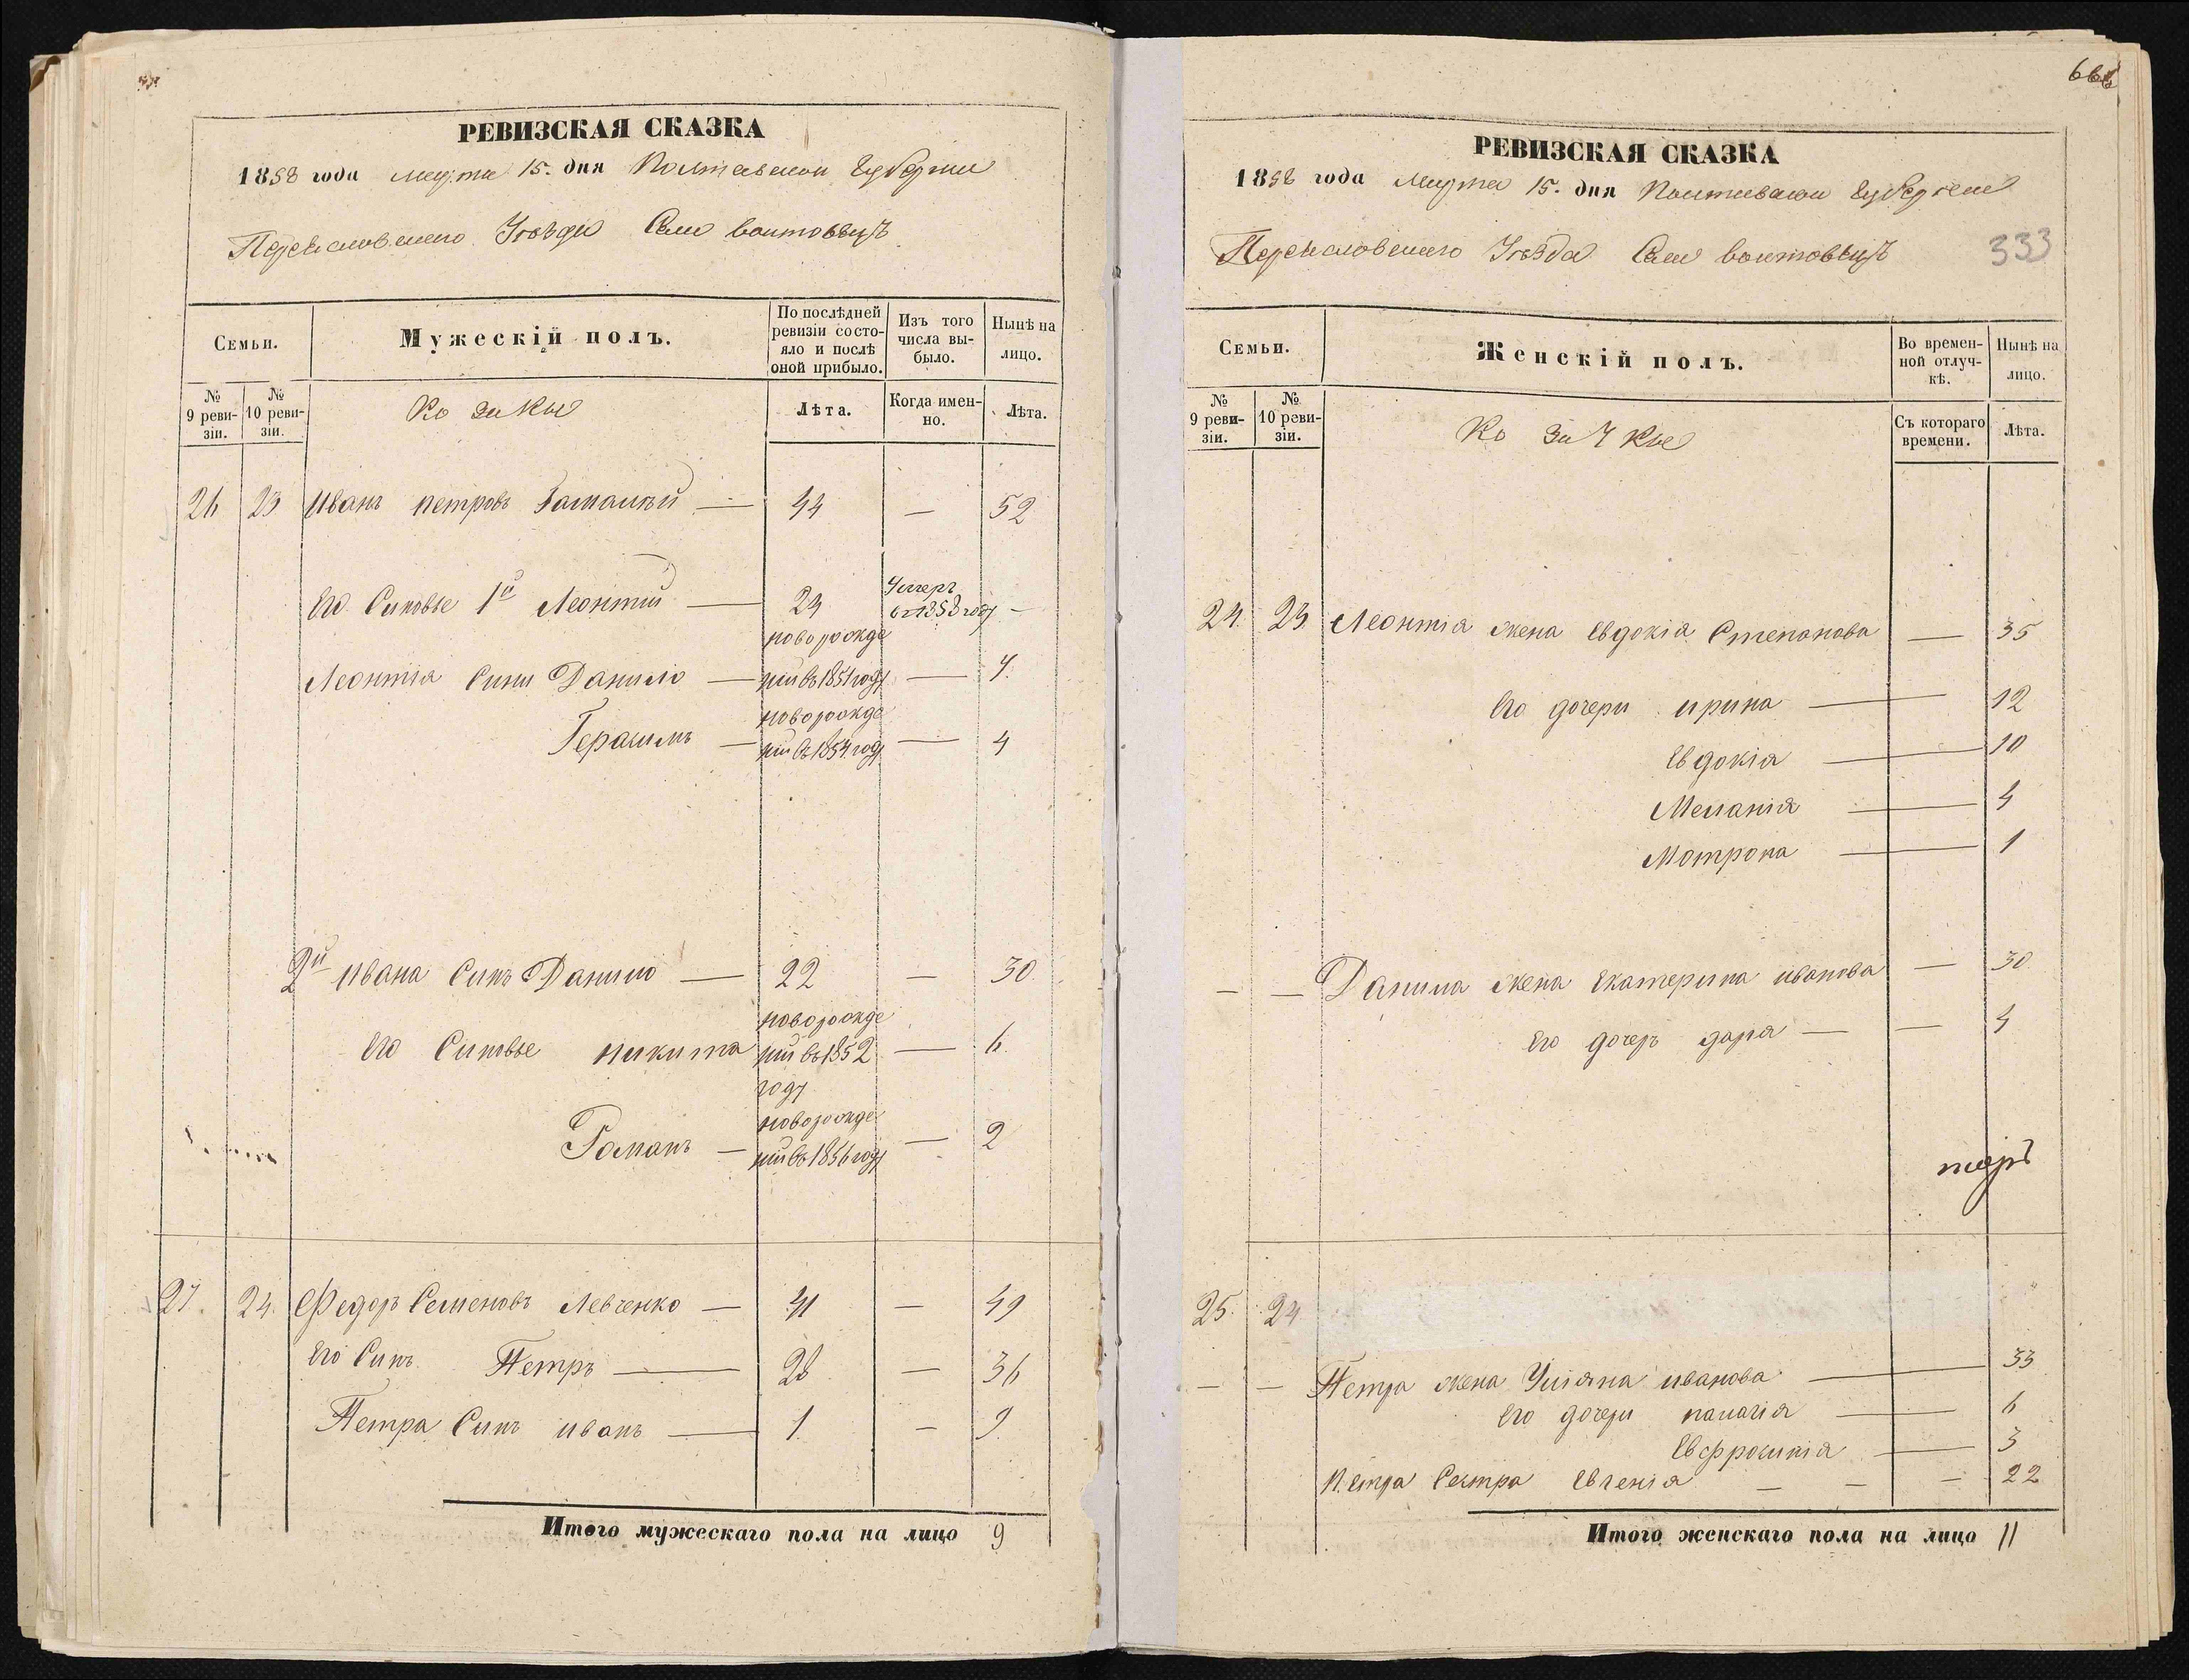 РЕВИЗСКАЯ СКАЗКА
1858 года марта 15. дня Полтавской Губернии
Переяславского Уезда Села Воитовецъ
Семьи.
Мужескій полъ.
По послѣдней ревизіи состо-
яло и послѣ
оной прибыло.
Изъ того
числа вы-
было.
Нынѣ на
лицо.
№
9 реви-
зіи.
№
10 реви-
зіи.
Козаки
Лѣта.
Когда имен-
но.
Лѣта.
26 23 Иванъ Петровъ — 44 — 52
Его Синовье 1й Леонтий — 24 Умеръ 1858 году —
Леонтія Сини Данило — новорожде ній въ 1851 году — 7.
Герасимъ — новорожде ній въ 1854 году — 4
2й Ивана Синъ Данило — 22 — 30
Его Синовье Никита новорожде ній въ 1852 году — 6.
Романъ — новорожде ній въ 1856 году — 2
27. 24. Федоръ Семеновъ Левченко — 41 — 49
Его Синъ Петръ — 28 — 36
Петра Синъ Иванъ — 1. — 9.
Итого мужескаго пола на лицо 9
666
РЕВИЗСКАЯ СКАЗКА
1858 года Марта 15. дня Полтавской Губернии
Переяславского Уезда Села Воитовецъ 333
Семьи.
Женскій полъ.
Во времен-
ной отлуч-
кѣ.
Нынѣ на
лицо.
№
9 реви-
зіи.
№
10 реви-
зіи.
Козачки
Съ котораго
времени.
Лѣта.
24. 23 Леонтія жена Евдокія Степанова — 35
Его дочери Ирина — 12
Евдокія — 10
Меланія — 4
Мотрона — 1
— — Данила жена Екатерина Иванова — 30
Его дочеръ Дарія — — 4
25. 24
— — Петра жена Уліяна Иванова — 33
Его дочери Палагія — 6
Евфросинія — 3
Петра Сестра Евгенія — — — 22
Итого женскаго пола на лицо 11